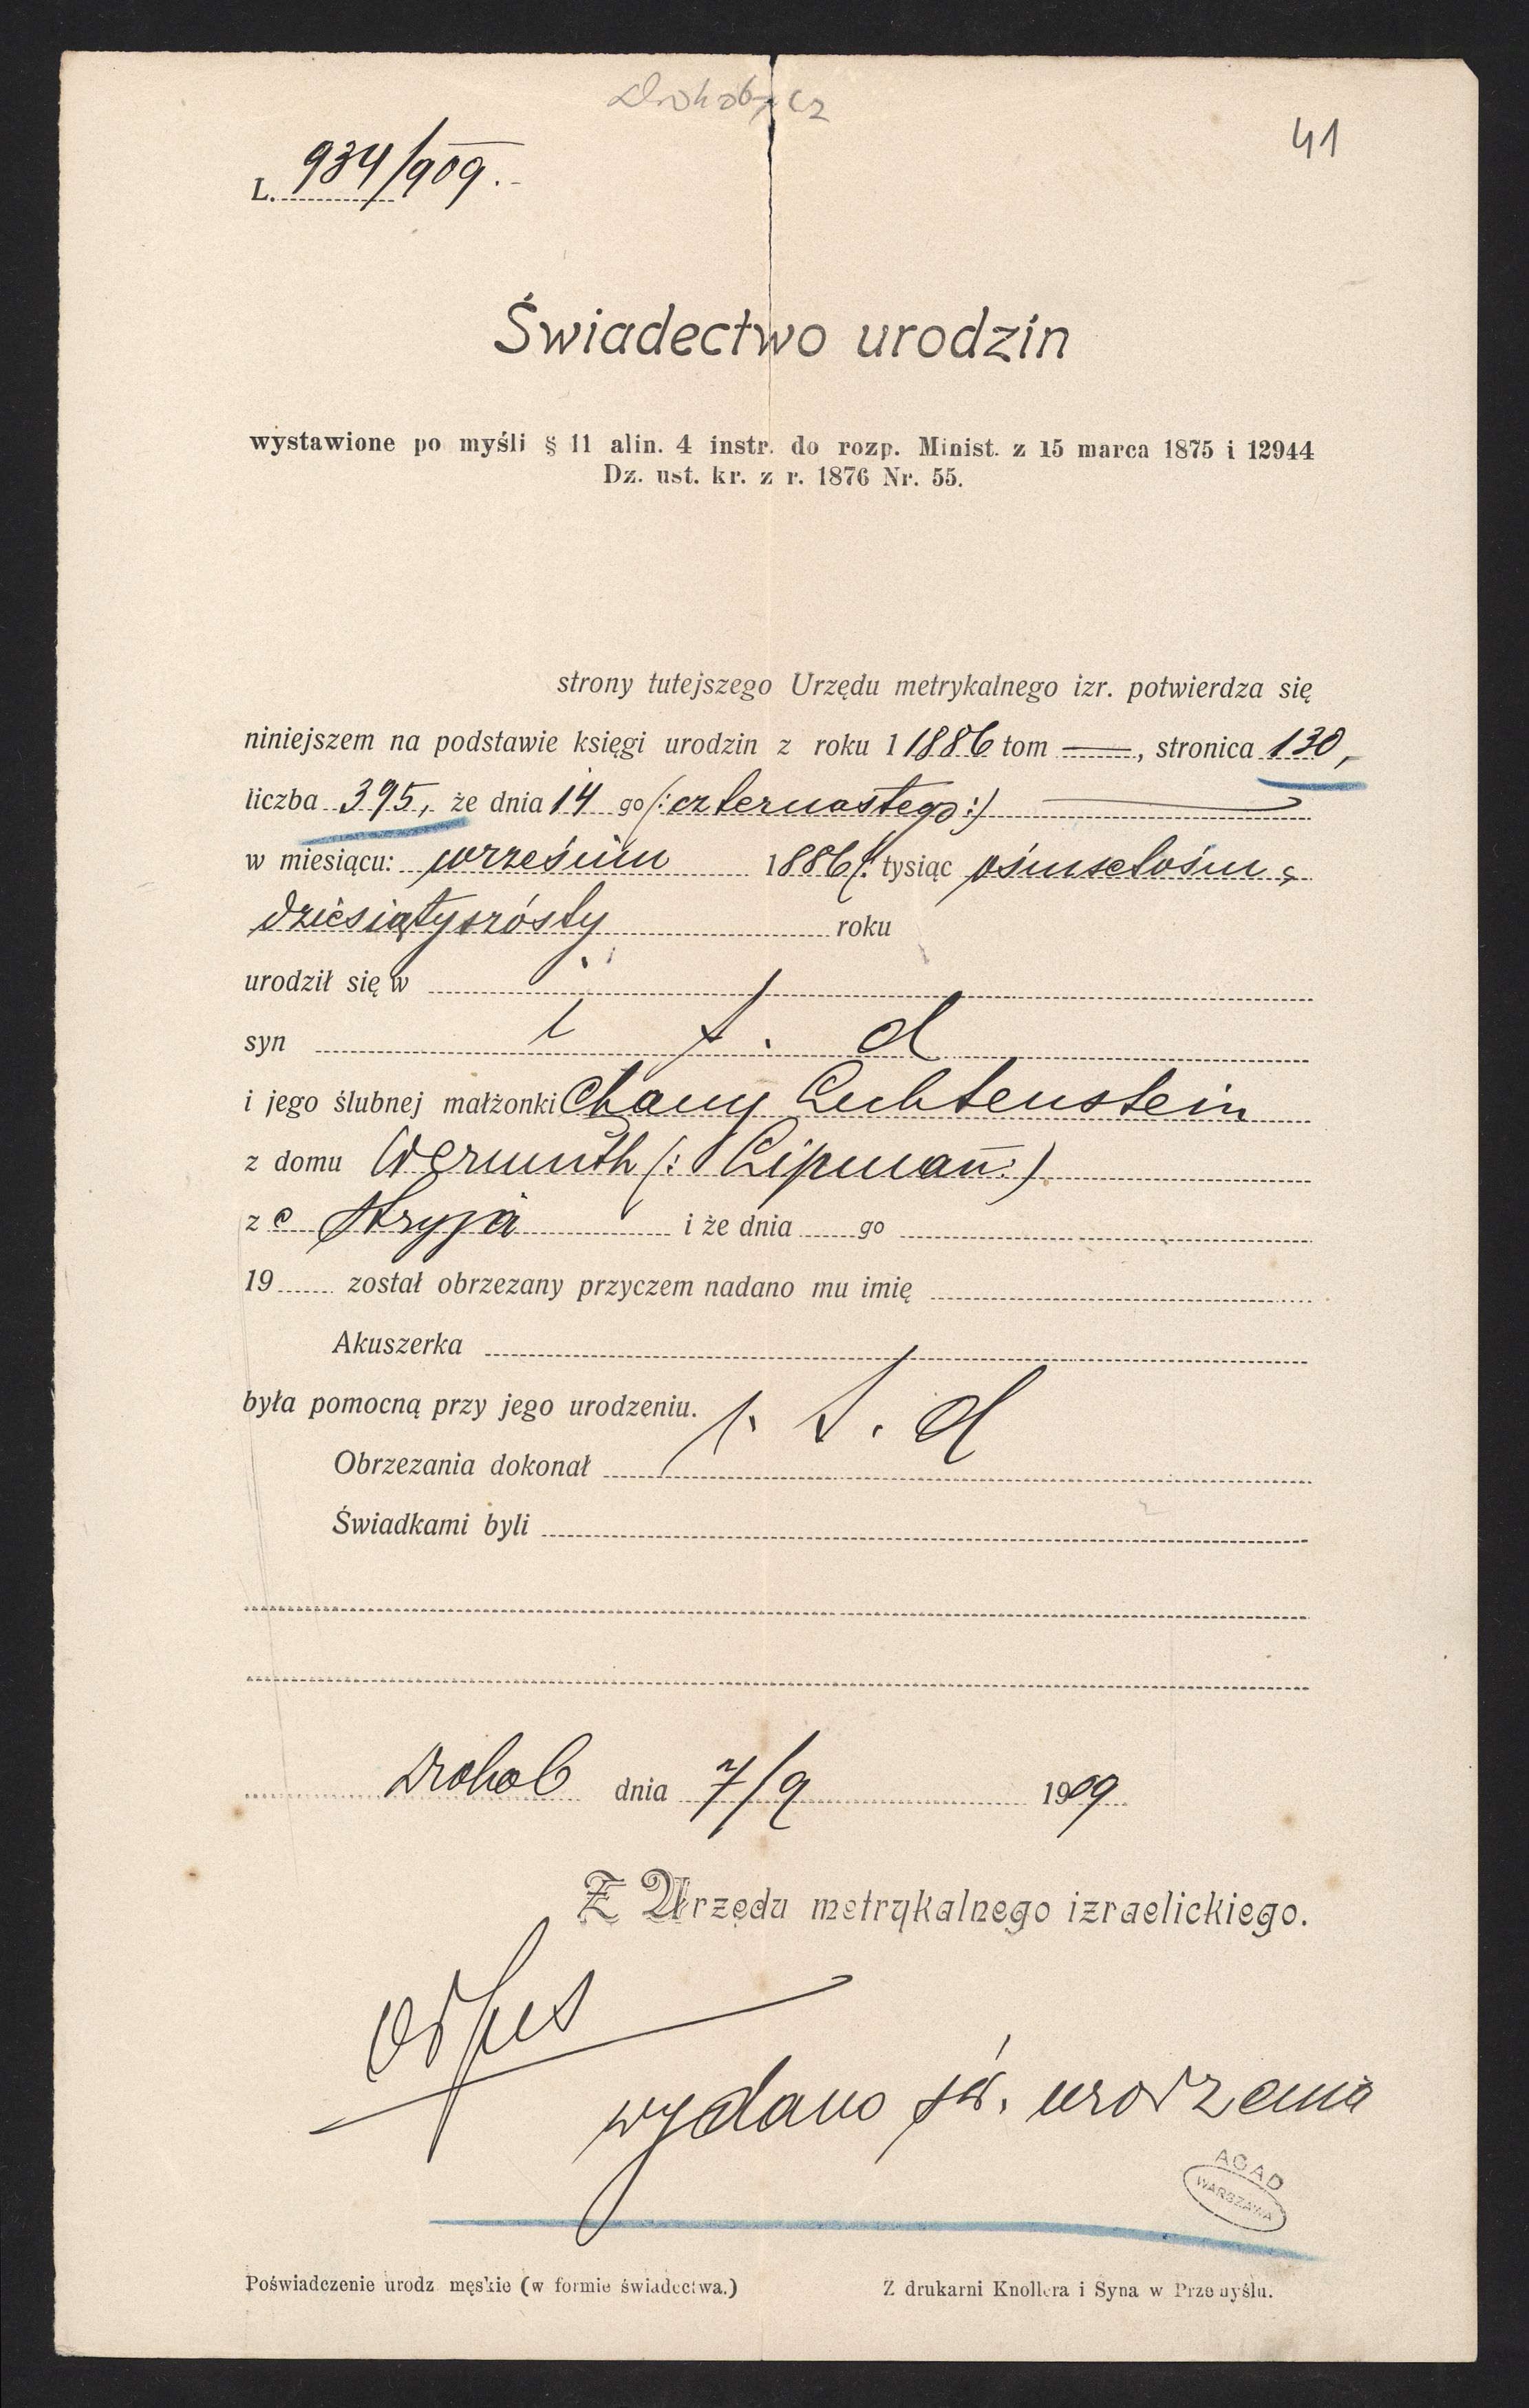 Drohobycz
41
L. 934/909.
Świadectwo urodzin
wystawione po myśli § 11 alin. 4 instr. do rozp. Minist. z 15 marca 1875 i 12944
Dz. ust. kr. z r. 1876 Nr. 55.
strony tutejszego Urzędu metrykalnego izr. potwierdza się
niniejszem na podstawie księgi urodzin z roku 1 1886 tom —, stronica 130,
liczba 395, że dnia 14 go (: czternastego :)
w miesiącu: wrześniu 1886 (: tysiąc ośmsetośm=
dziesiątyszósty roku
urodził się w
syn i t. d
i jego ślubnej małżonki Chany Lichtenstein
z domu Wermuth (: Lipman :)
z e Stryja i że dnia go
19 został obrzezany przyczem nadano mu imię
Akuszerka
była pomocną przy jego urodzeniu. i. t. d
Obrzezania dokonał
Świadkami byli
Drohob dnia 7/9 1909
Z Urzędu metrykalnego izraelickiego.
Odpis
wydano św. urodzenia
AGAD
WARSZAWA
Poświadczenie urodz męskie (w formie świadectwa.)
Z drukarni Knollera i Syna w Przemyślu.